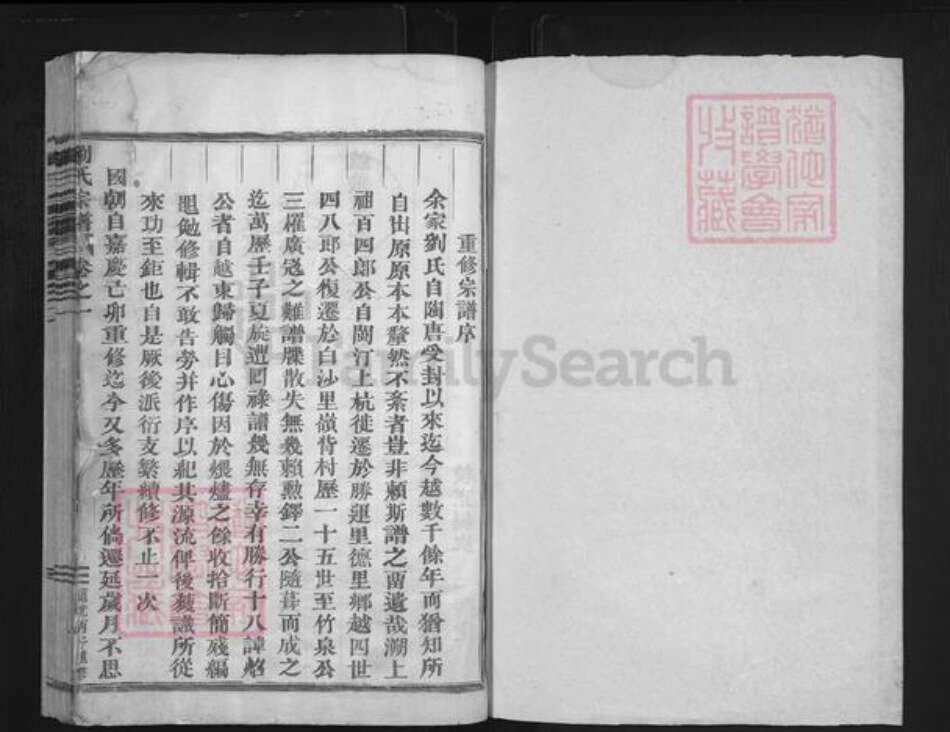 重修宗譜序
余家劉氏自陶唐受封以來迄今越數千餘年而猶知所
自出原原本本釐然不紊者豈非賴斯譜之留遺哉溯上
祖百四郎公自閩汀上杭徙遷於勝運里德里鄉越四世
四八郎公復遷於白沙里嶺背村歷一十五世至竹泉公
三權廣寇之難譜牒散失無幾賴勲鐸二公隨葺而成之
迄萬歷壬子夏旋遭回祿譜幾無存幸有勝行十八諱
公者自越東歸觸目心傷因於煨燼之餘收拾斷簡殘編
黽勉修輯不敢告勞并作序以紀其源流俾後裔識所從
來功至鉅也自是厥後派衍支繁續修不止一次
國朝自嘉慶己卯重修迄今又多歷年所倘遷延歲月不思
劉氏宗譜 卷之一
猶他家譜學會收藏
FamilySearch